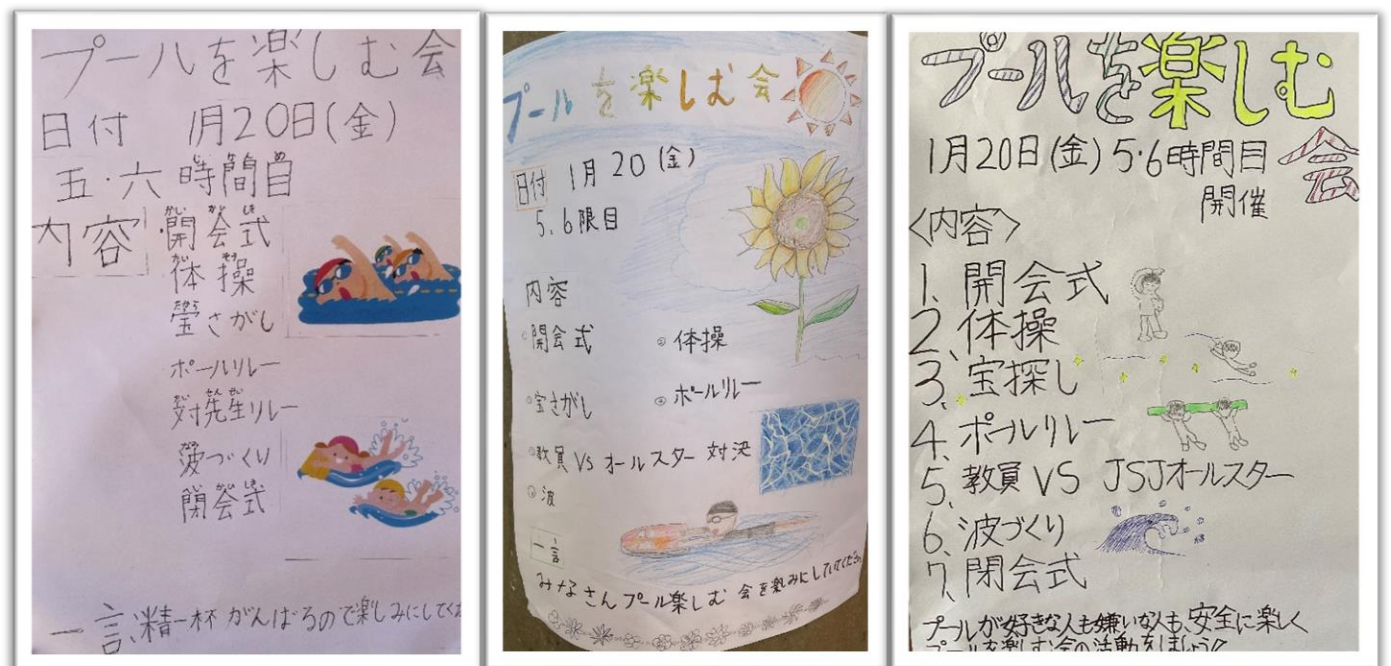 プールを楽しむ会
日付 1月20日(金)
五・六時間目
内容 ・開会式
体操
宝さがし
ポールリレー
対先生リレー
波づくり
閉会式
一言、精一杯がんばるので楽しみにしてくだ
プールを楽しむ会
日付 1月20(金)
5.6限目
内容
開会式 体操
宝さがし ポールリレー
教員VSオールスター対決
波
一言
みなさんプール楽しむ会を楽みにしていてくだ
プールを楽しむ会
1月20日(金)5・6時間目
開催
<内容>
1、開会式
2、体操
3、宝探し
4、ポールリレー
5、教員VS JSJオールスター
6、波づくり
7、閉会式
プールが好きな人も嫌いな人も、安全に楽しく
プールを楽しむ会の活動をしましょう!